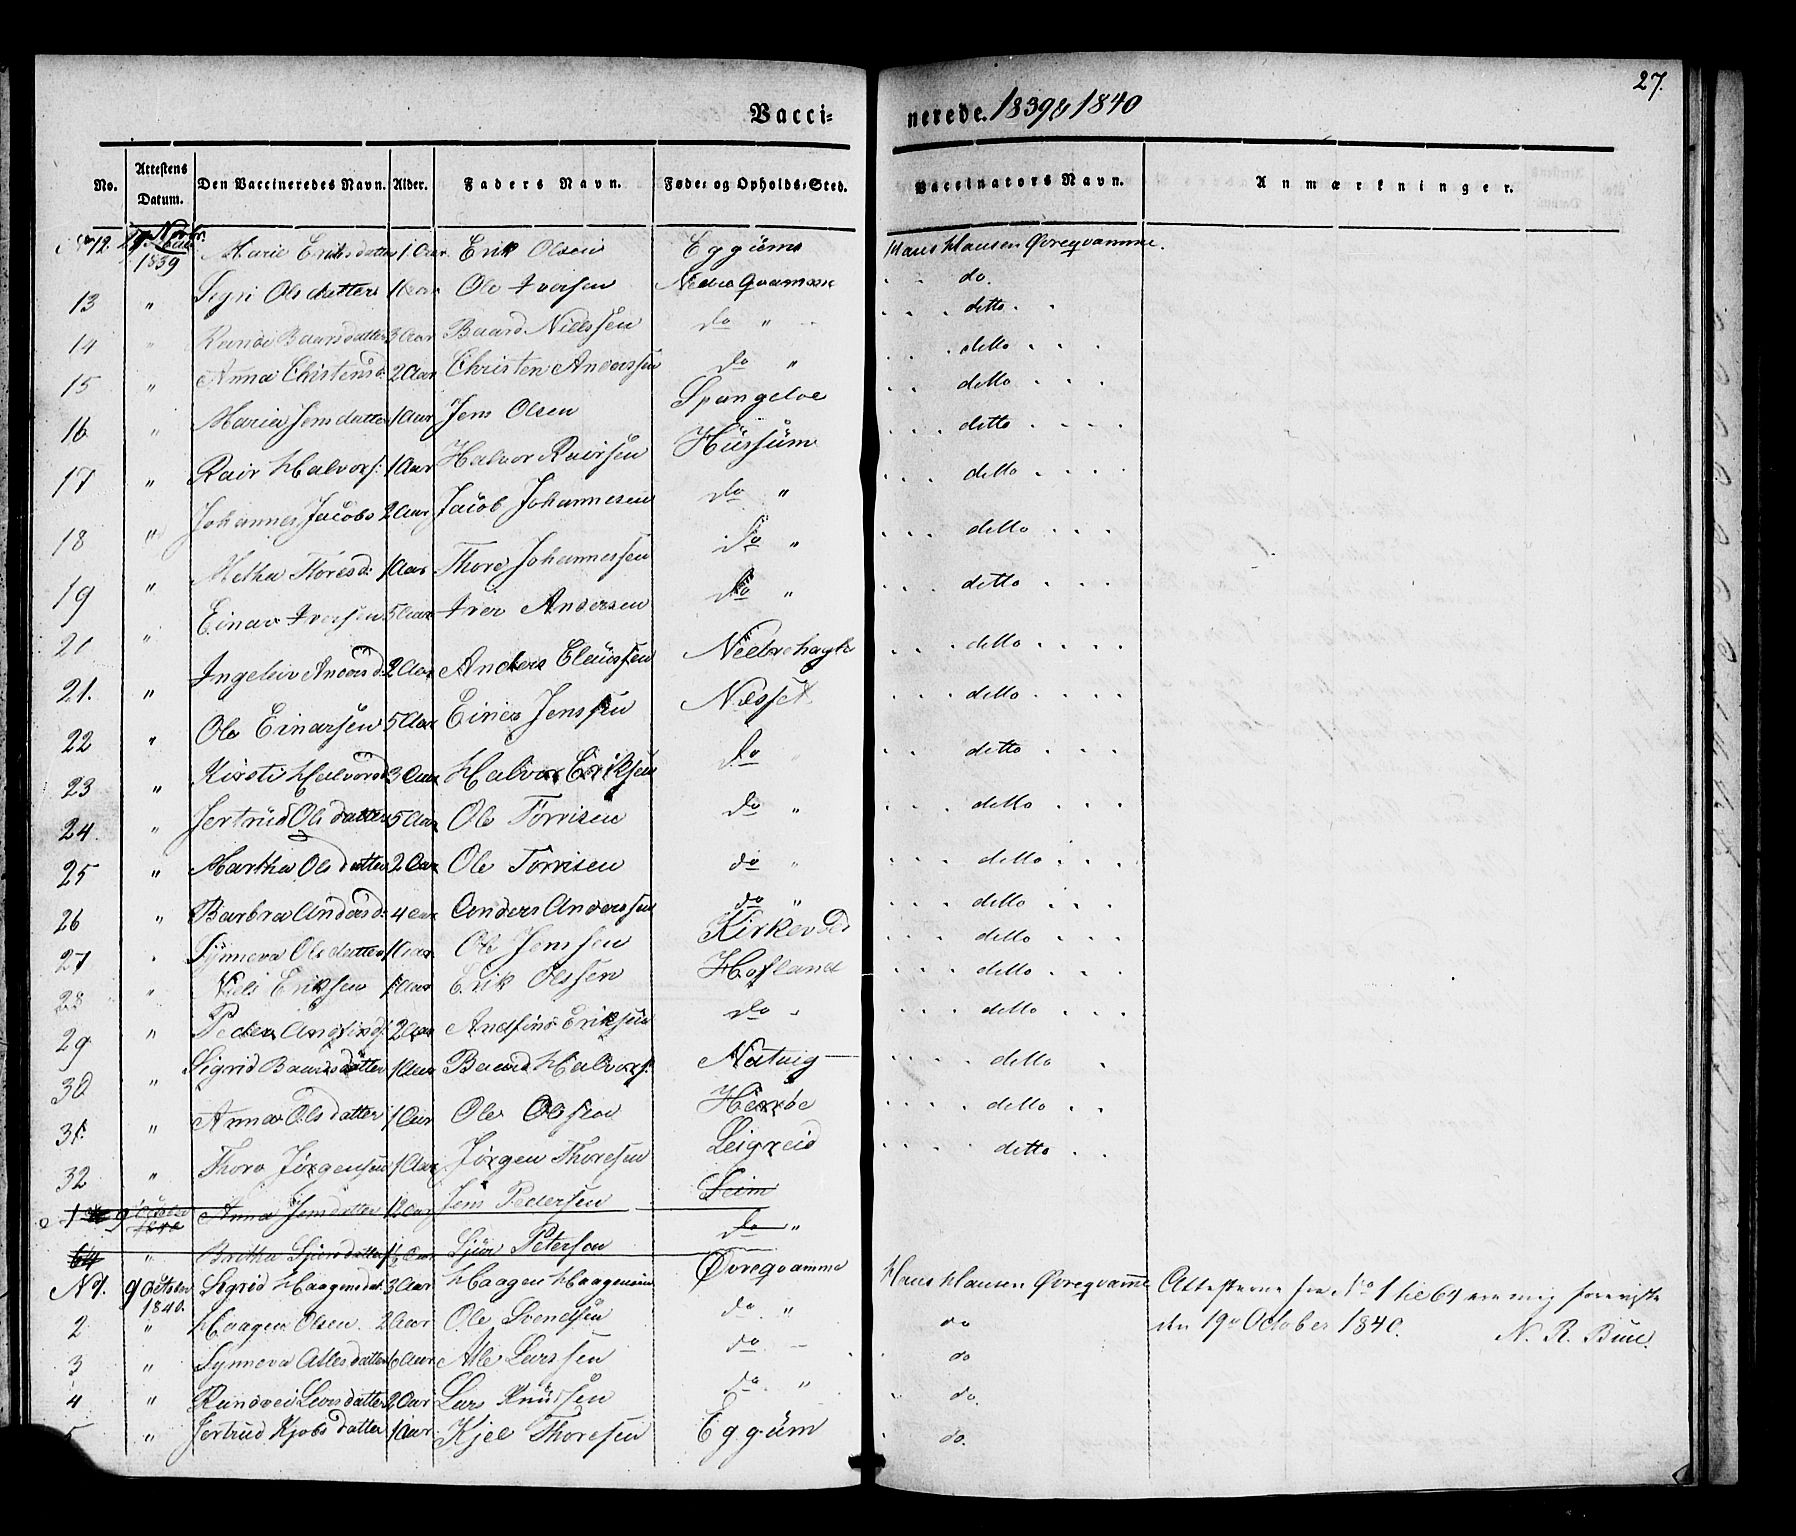 27.
Vaccinerede. 1839 & 1840
No. Attestens Datum. Den Vaccineredes Navn. Alder. Faders Navn. Føde- og Opholds-Sted. Vaccinators Navn. Anmærkninger.
No 12. 1839 Marie Eriksdatter 1 Aar. Erik Olsen Eggüm Hans Hansen Øvreqvamme.
13 " Sigri Olsdatter 1 Aar Ole Iversen Nedreqvamme do.
14 " Randi Baarsdatter 3 Aar Baard Nielssen do " detto
15 " Anna Chistensd: 2 Aar Christen Anderssen do " detto
16 " Maria Jensdatter 1 Aar Jens Olsen Spangeloe detto
17 " Rair Halvors: 1 Aar Halvor Rairsen Hüssüm detto
18 " Johannes Jacobs 2 Aar Jacob Johannesen do " detto
19 " Metha Thoresd: 1 Aar Thore Johannessen do " detto
21 " Einar Iversen 5 Aar Iver Andersen do " detto
21. " Ingeleiv Andersd: 2 Aar Anders Claüssen detto
22 " Ole Einarsen 5 Aar Einer Jenssen Næsset detto
23 " Kirsti Halvorsd 3 Aar Halvor Eriksen do detto
24. " Jertrüd Olsdatter 5 Aar Ole Torrisen do " detto
25 " Martha Olsdatter 2 Aar Ole Torrisen do " detto
26 " Barbra Andersd: 4 Aar Anders Anderssen do " detto
27 " Synneva Olsdatter 1 Aar Ole Jenssen Kirkevold detto
28 " Niels Eriksen 1 Aar Erik Olssen Hofland detto
29 " Peder Andfinds: 2 Aar Andfind Eriksen do " detto
30 " Sigrid Baarsdatter 1 Aar Baard Halvors: Natvig detto
31. " Anna Olsdatter 1 Aar Ole Olsen detto
32 " Thore Jørgensen 1 Aar Jørgen Thoresen Leigreid detto
1 9 October 1840 Anna Jensdatter 12 Aar Jens Pedersen Seim
64 " Britha Sjürsdatter ½ Aar Sjür Petersen do "
No 1. 9 October 1840. Sigrid Haagensdat: 3 Aar Haagen Haagensen Øvreqvamme Hans Hansen Øvreqvamme Attesterne fra No 1 til 64 ere mig foreviste
2 " Haagen Olsen 2 Aar Ole Svendsen do " do den 19de October 1840. N. R. Bull.
3 " Synneva Atlesdatter 6 Aar Atle Larssen do do
4 " Randvei Larsdatter 2 Aar Lars Knüdssen do. " do.
5 " Jertrud Kjelsdatter 1 Aar Kjel Thoresen Eggüm do.